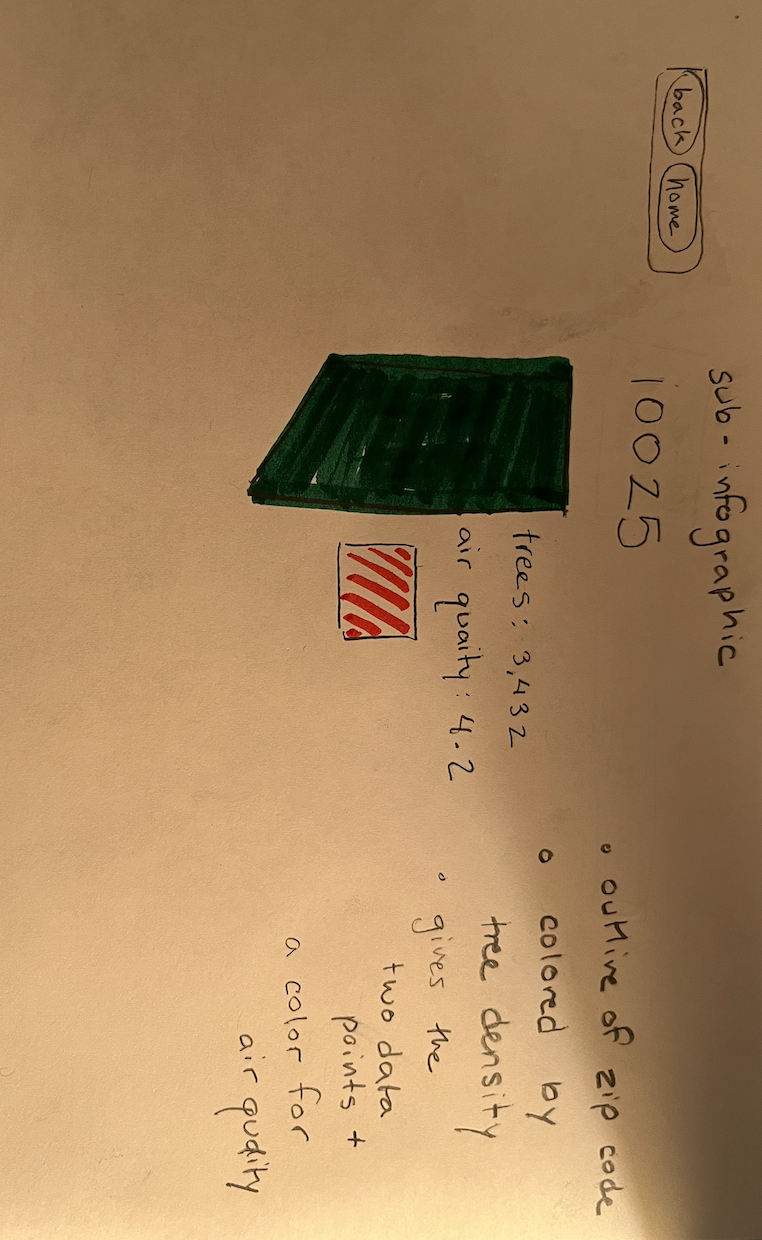 back home
sub-infographic
10025
trees: 3,432
air quaity: 4.2
outline of zip code
colored by
tree density
gives the
two data
points +
a color for
air quality